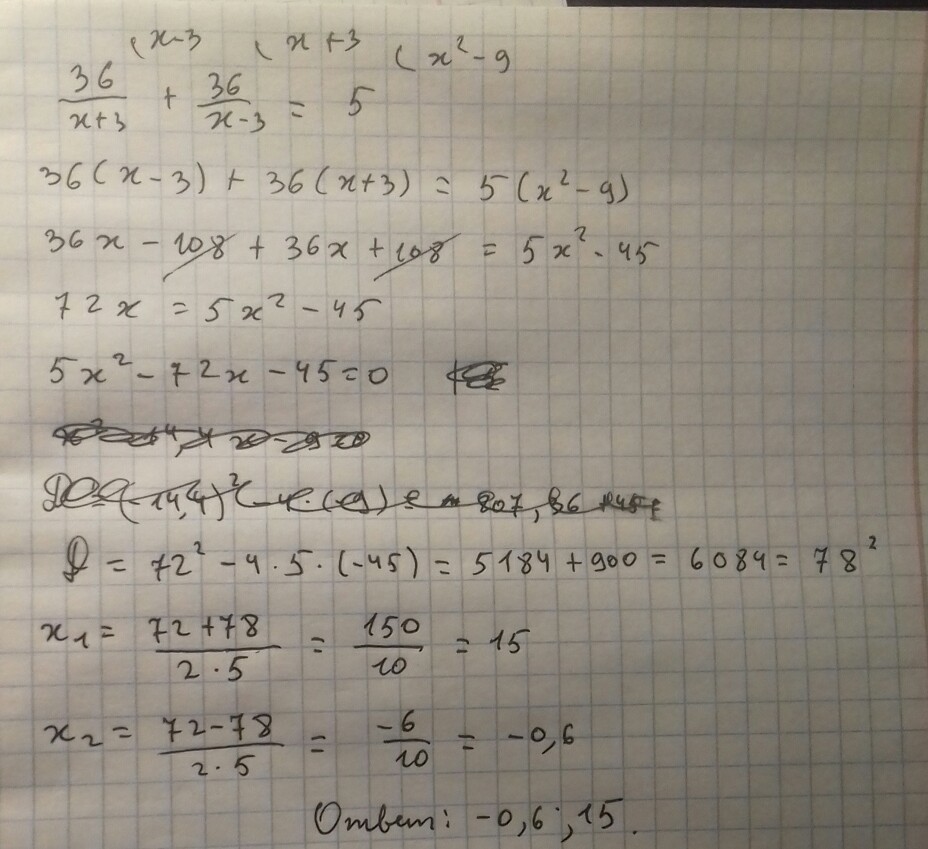 (x-3 (x+3 (x²-9
36/(x+3) + 36/(x-3) = 5
36(x-3) + 36(x+3) = 5(x²-9)
36x - 108 + 36x + 108 = 5x² - 45
72x = 5x² - 45
5x² - 72x - 45 = 0
D = (-14,4)² - 4·(-9) = 207,36
D = 72² - 4·5·(-45) = 5184 + 900 = 6084 = 78²
x₁ = (72+78)/(2·5) = 150/10 = 15
x₂ = (72-78)/(2·5) = -6/10 = -0,6
Ответ: -0,6; 15.